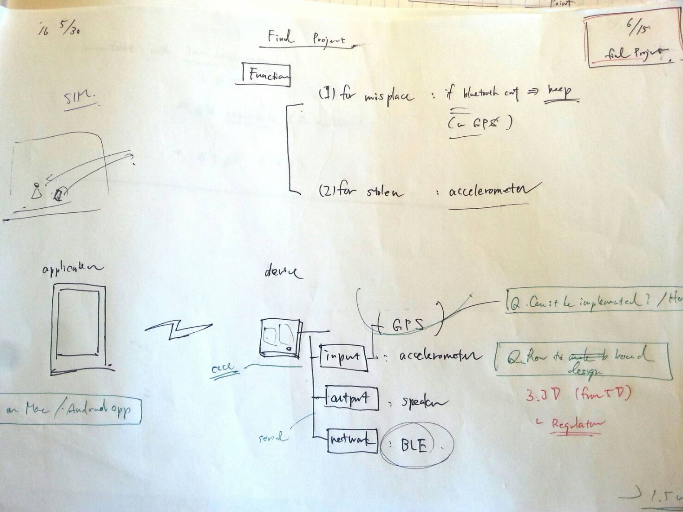 '16 5/30
Final Project
6/15
final Project
Function
(1) for misplace : if bluetooth cut ⇒ beep
(or GPS)
SIM.
(2) for stolen : accelerometer
application
device
(+ GPS)
Q. Can't be implemented? /
input : accelerometer
Q. How to board
design
acce
on Mac / Android app
output : speaker
3.3V (from 5V)
Regulator
network : BLE